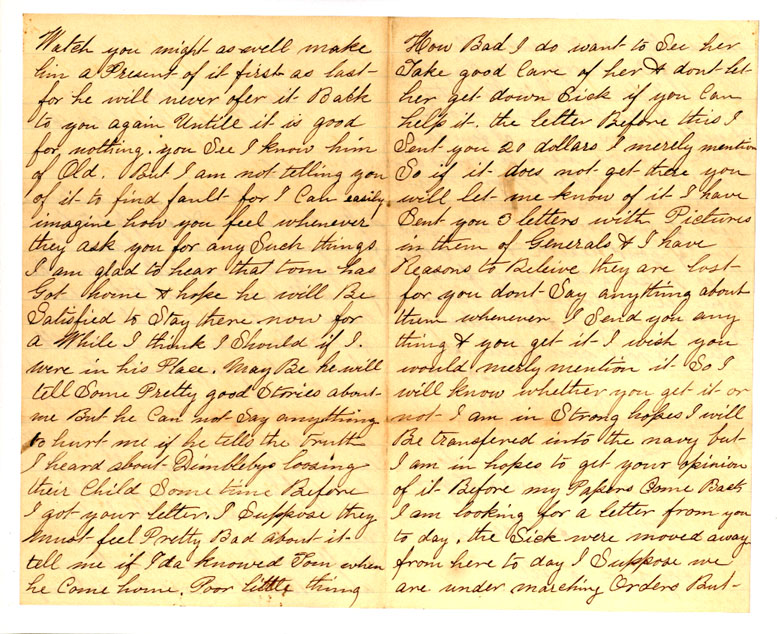 Watch you might as well make
him a Present of it first as last
for he will never ofer it Back
to you again Untill it is good
for nothing. you See I know him
of Old. But I am not telling you
of it to find fault for I Can easily
imagine how you feel whenever
they ask you for any Such things
I am glad to hear that tom has
Got home & hope he will Be
Satisfied to Stay there now for
a While I think I Should if I
were in his Place. May Be he will
tell Some Pretty good Stories about
me But he Can not Say anything
to hurt me if he tells the truth
I heard about Dimblebys loosing
their Child Some time Before
I got your letter. I Suppose they
Must feel Pretty Bad about it
tell me if Ida knowed Tom when
he Come home. Poor little thing
How Bad I do want to See her
Take good Care of her & dont let
her get down Sick if you Can
help it. the letter Before this I
Sent you 20 dollars I merely mention
So if it does not get there you
will let me know of it I have
Sent you 3 letters with Pictures
in them of Generals & I have
Reasons to Beleive they are lost
for you dont Say anything about
them whenever I Send you any
thing & you get it I wish you
would merly mention it So I
will know whether you get it or
not I am in Strong hopes I will
Be transfered into the navy but
I am in hopes to get your opinion
of it Before my Papers Come Back
I am looking for a letter from you
to day. the Sick were moved away
from here to day I Suppose we
are under marching Orders But